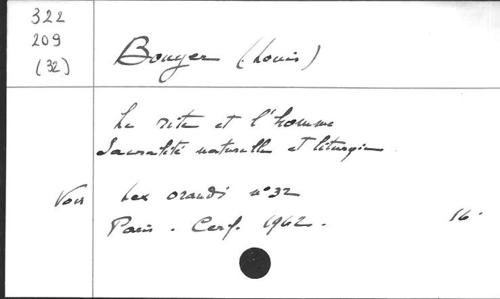 322
209
(32)
Bouyer (Louis)
Le rite et l'homme
Sacralité naturelle et liturgie
Voir Lex orandi n°32
Paris. Cerf. 1962. 16.